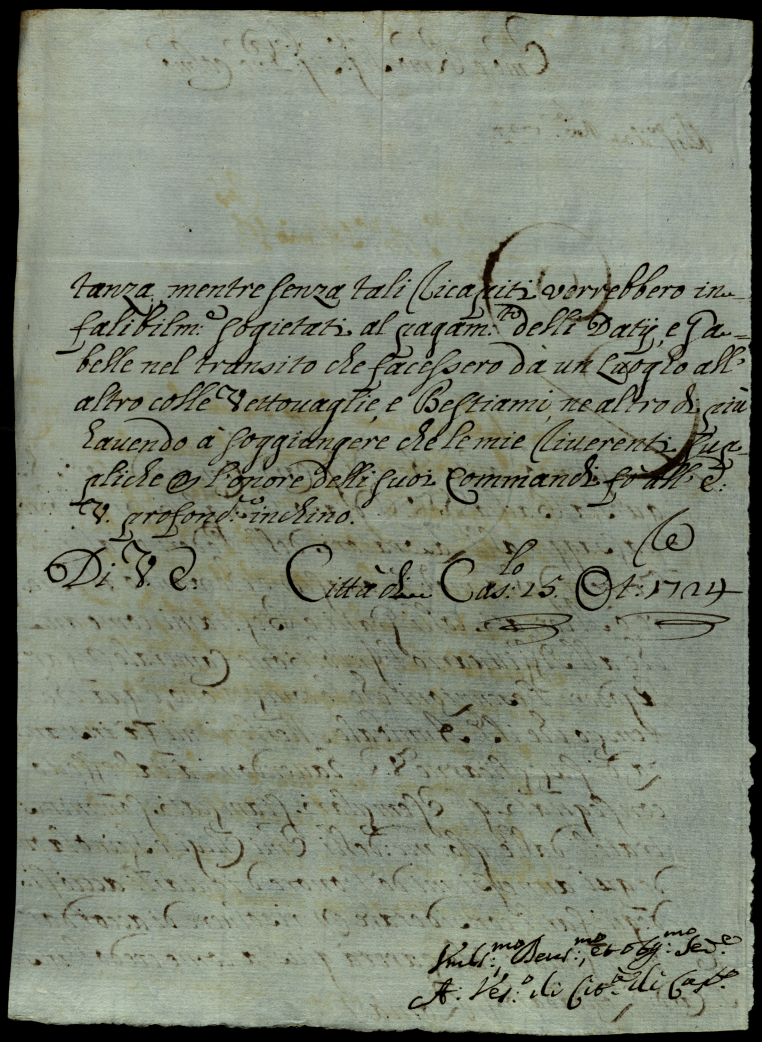 tanza, mentre senza tali Ricapiti verrebbero in=
falibilm:e sogietati al pagam:to delli Datij, e Ga=
belle nel transito che facessero da un Luogho all'
altro colle Vettovaglie, e Bestiami, ne altro di più
havendo à soggiangere che le mie Riverenti Sup=
pliche & l'onore delli suoi Commandi fò all' E:
V. profond:e inchino.
Di V. E. Città di Cas:lo 15 Ot: 1724
Umil:mo, Devot:mo, et obg:mo Ser:e
A. Ves:o di Citt:à di Cast:o